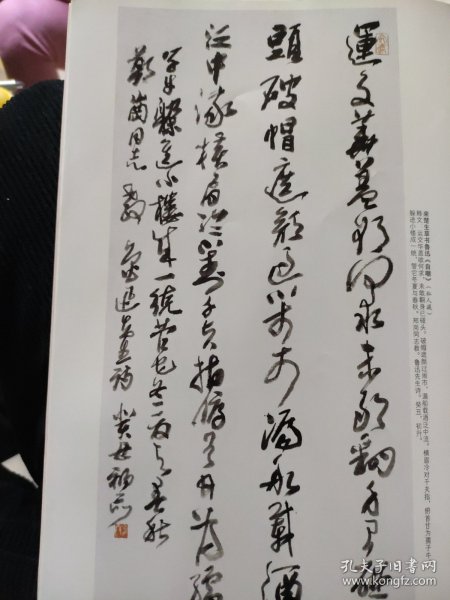 来楚生草书鲁迅《自嘲》(私人藏)
释文:运交华盖欲何求,未敢翻身已碰头。破帽遮颜过闹市,漏船载酒泛中流。横眉冷对千夫指,俯首甘为孺子牛。
躲进小楼成一统,管它冬夏与春秋。同志教。鲁迅先生诗。癸丑,初升。
運交華蓋欲何求未敢翻身已碰
頭破帽遮顏過鬧市漏船載酒
泛中流橫眉冷對千夫指俯首甘為孺
子牛躲進小樓成一統管它冬夏與春秋
同志教 魯迅先生詩 癸丑初升
孔夫子旧书网
www.kongfz.com